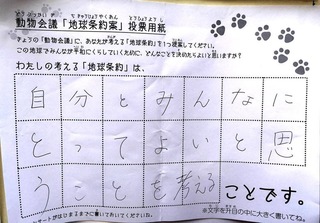 動物会議「地球条約案」投票用紙
きょうの「動物会議」に、あなたが考える「地球条約」を1つ提案してください。
この地球でみんなが平和にくらしていくために、どんなことを決めたらよいと思いますか?
わたしの考える「地球条約」は、
自分とみんなに
とってよいと思
うことを考える ことです。
※文字を升目の中に大きく書いてね。